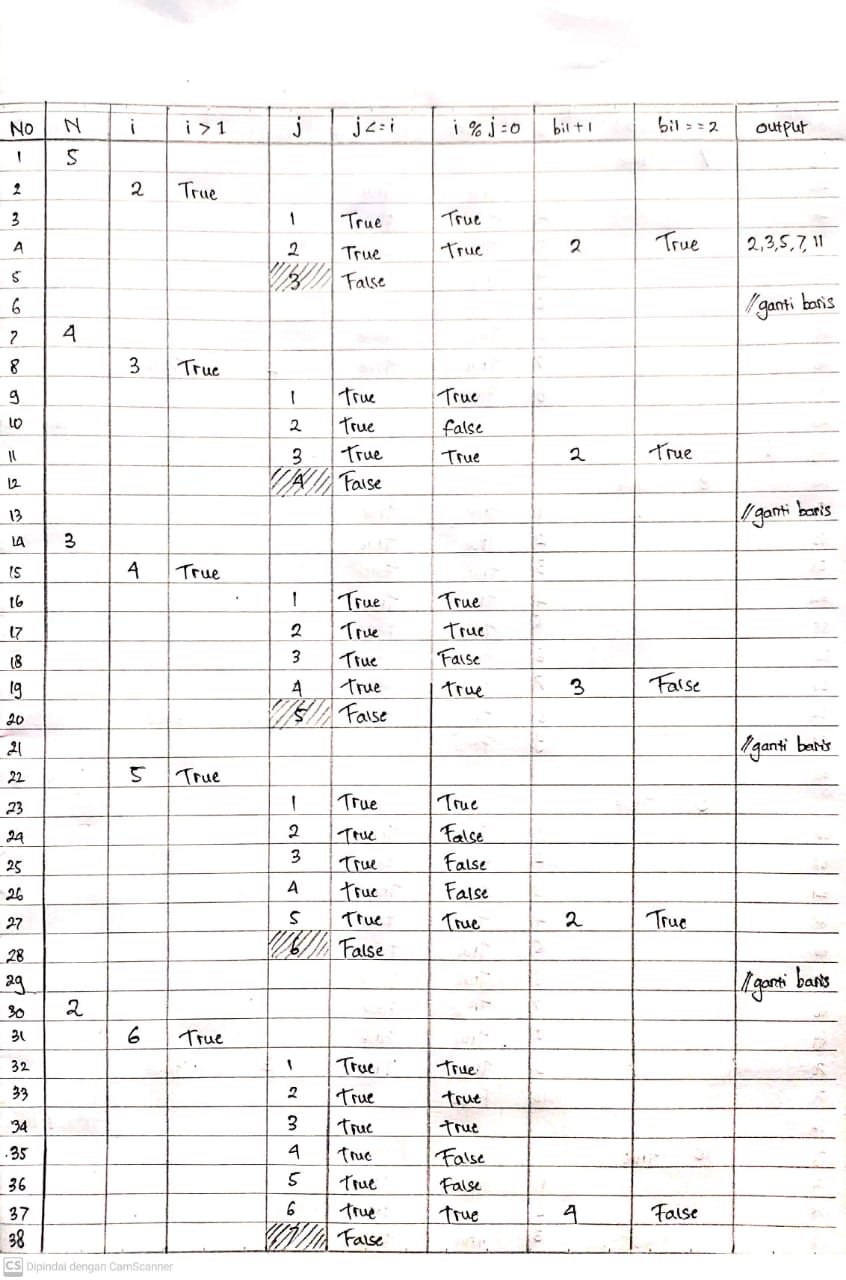 NO N i i > 1 j j <= i i % j = 0 bil + 1 bil == 2 output
1 5
2 2 True
3 1 True True
4 2 True True 2 True 2,3,5,7,11
5 3 False
6 //ganti baris
7 4
8 3 True
9 1 True True
10 2 True false
11 3 True True 2 True
12 4 False
13 //ganti baris
14 3
15 4 True
16 1 True True
17 2 True True
18 3 True False
19 4 True True 3 False
20 5 False
21 //ganti baris
22 5 True
23 1 True True
24 2 True False
25 3 True False
26 4 True False
27 5 True True 2 True
28 6 False
29 //ganti baris
30 2
31 6 True
32 1 True True
33 2 True True
34 3 True True
35 4 True False
36 5 True False
37 6 True True 4 False
38 7 False
CS Dipindai dengan CamScanner